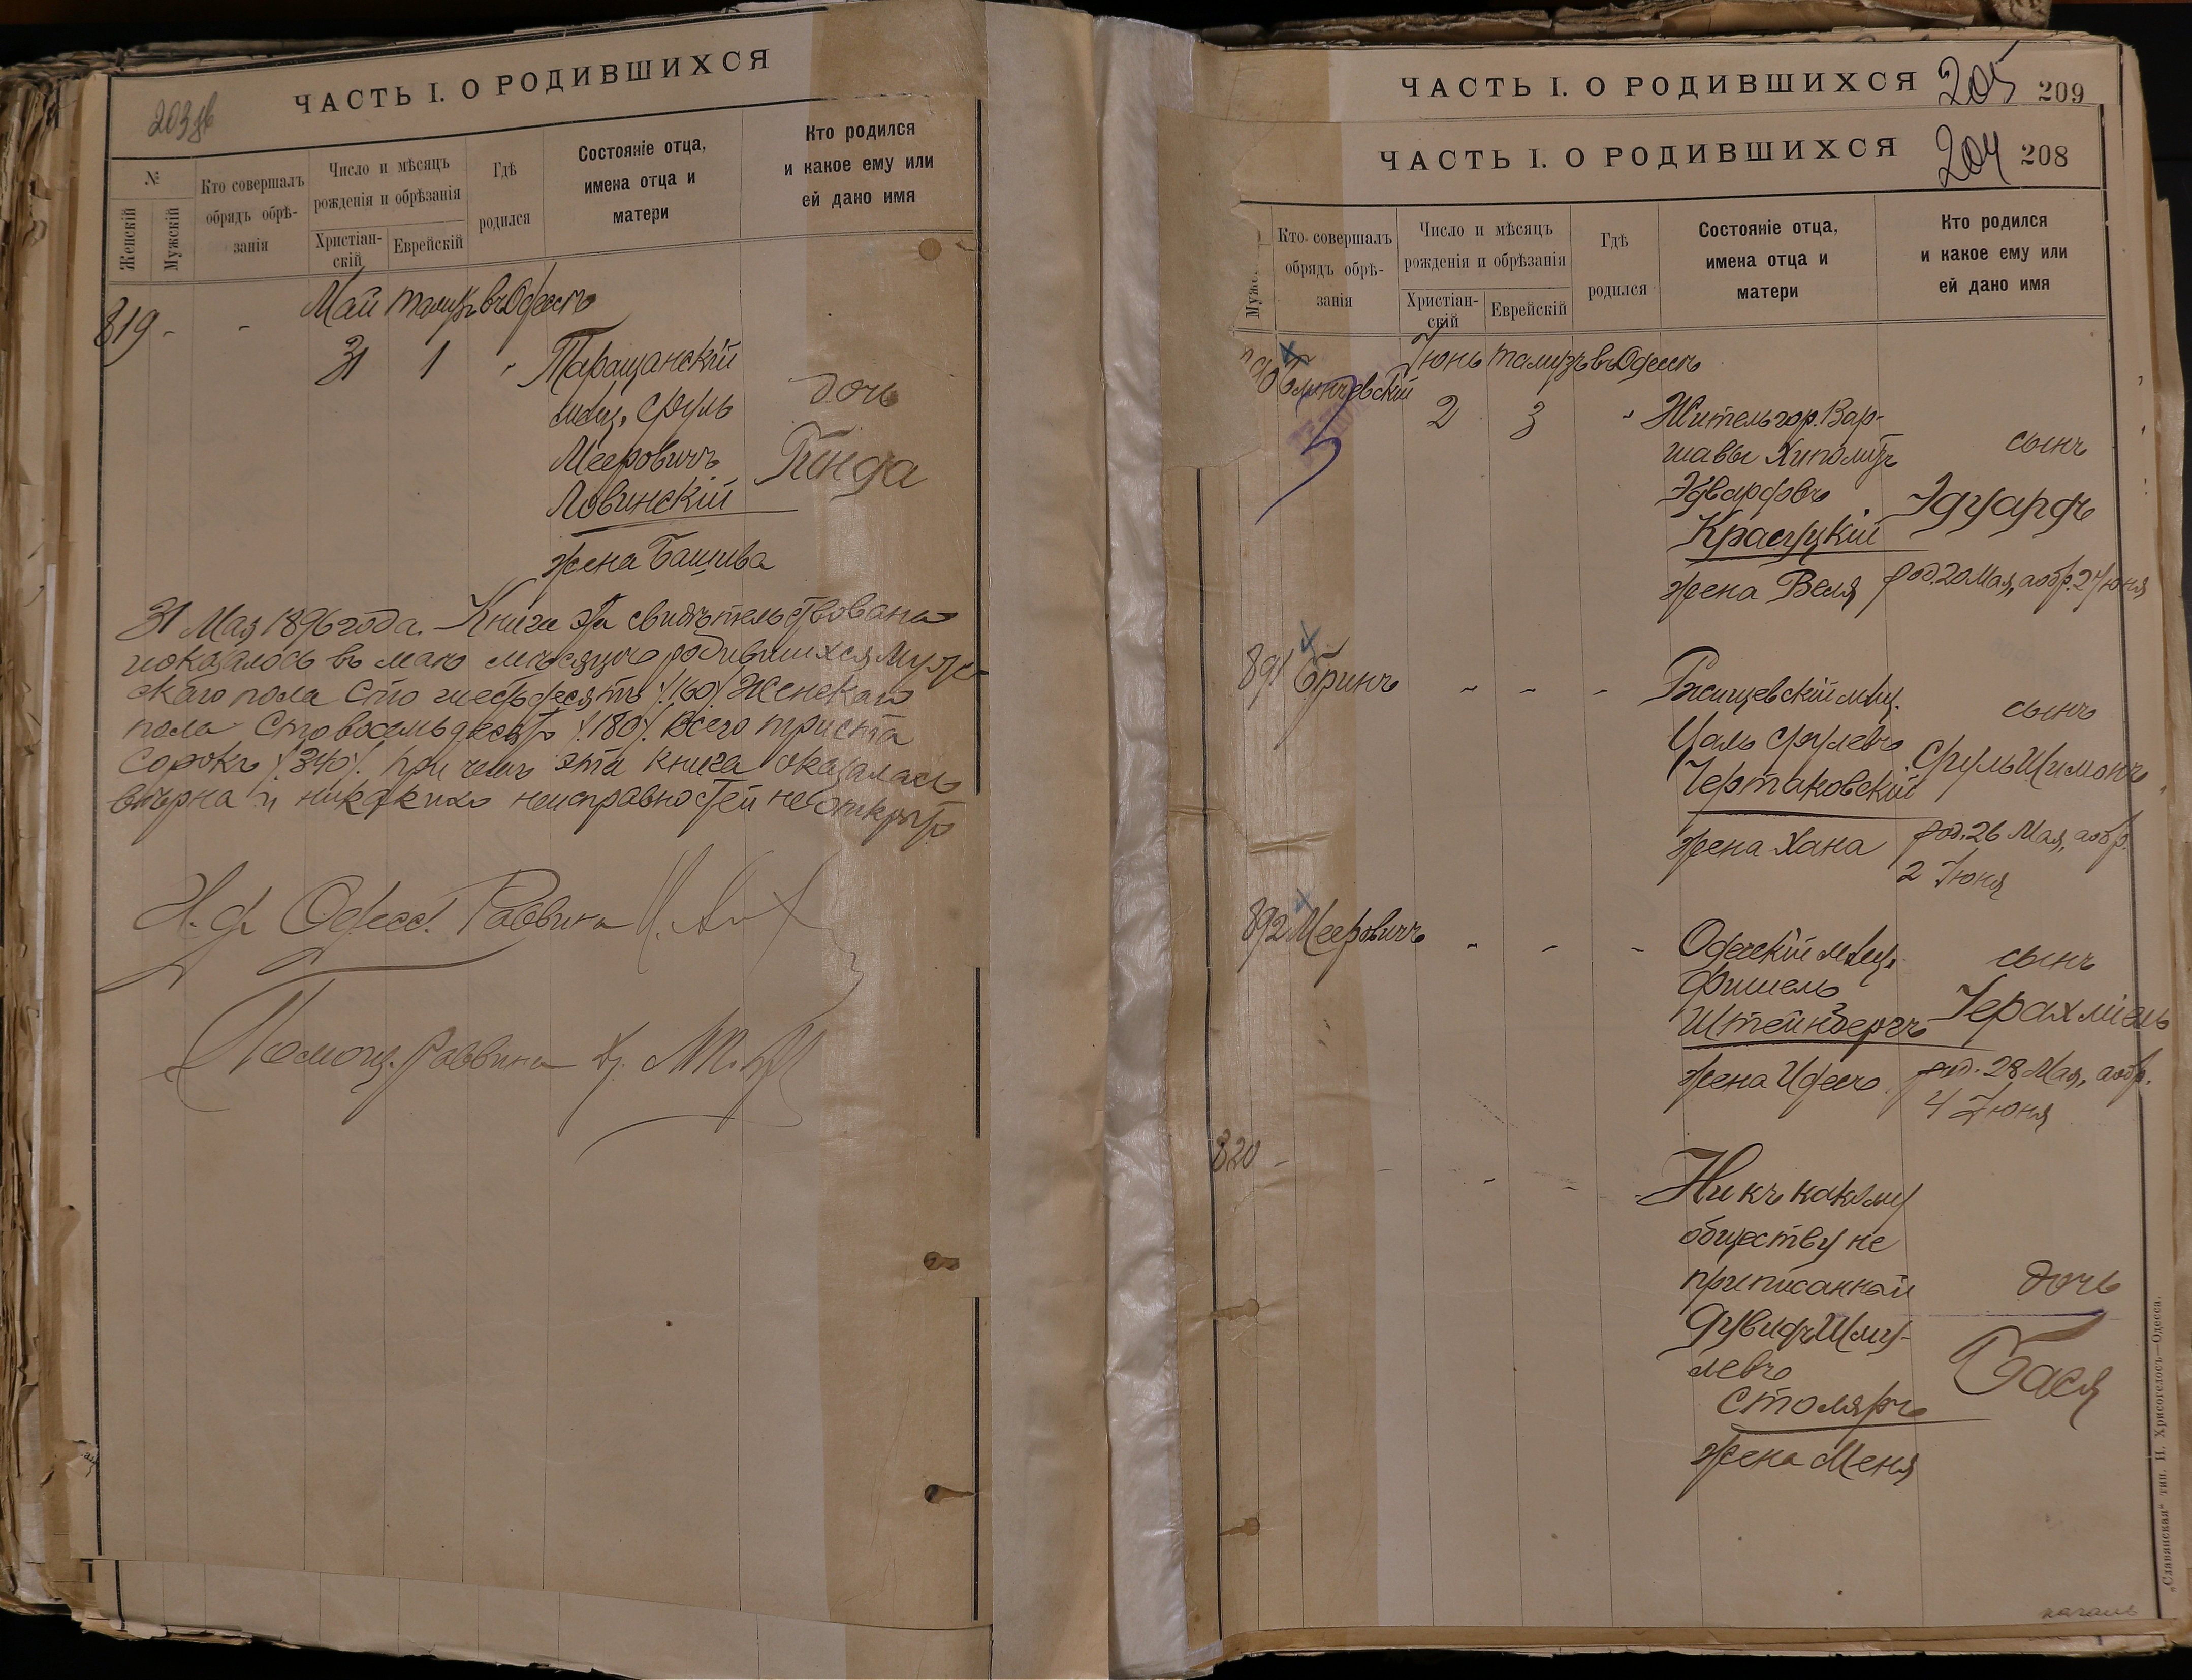 ЧАСТЬ I. О РОДИВШИХСЯ
№
Женскій
Мужскій
Кто совершалъ
обрядъ обрѣ-
занія
Число и мѣсяцъ
рожденія и обрѣзанія
Христіан-
скій
Еврейскій
Гдѣ
родился
Состояніе отца,
имена отца и
матери
Кто родился
и какое ему или
ей дано имя
Май тамузъ въ Одессѣ
819 - - 31 1 "
Таращанскій
мѣщ. Сруль
Мееровичъ
Ловинскій
жена Башива
дочь
Генда
31 Мая 1896 года. Книга эта свидѣтельствована
и оказалось въ маѣ мѣсяцѣ родившихся Муже-
скаго пола Сто шестьдесятъ /.160/. Женскаго
пола Сто восемьдесятъ /.180/. Всего триста
сорокъ /.340/. при чемъ эта книга оказалась
вѣрна и никакихъ неисправностей не открыто
И. д. Одесс. Раввина
Помощ. Раввина
ЧАСТЬ I. О РОДИВШИХСЯ 205 209
ЧАСТЬ I. О РОДИВШИХСЯ 204 208
Кто совершалъ
обрядъ обрѣ-
занія
Число и мѣсяцъ
рожденія и обрѣзанія
Христіан-
скій
Еврейскій
Гдѣ
родился
Состояніе отца,
имена отца и
матери
Кто родился
и какое ему или
ей дано имя
Іюнь тамузъ въ Одессѣ
2 3 "
Житель гор. Вар-
шавы Хиполитъ
Эдвардовъ
Красуцкій
жена Веля
сынъ
Эдуардъ
род. 20 Мая, а обр. 2 Іюня
891 Бринъ - - -
Ржищевскій мѣщ.
Цаль Срулевъ
Чертаковскій
жена Хана
сынъ
Сруль Шимонъ
род. 26 Мая, а обр.
2 Іюня
892 Мееровичъ - - -
Одесскій мѣщ.
Фишель
Штейнбергъ
жена Идесъ
сынъ
Іерахміель
род. 28 Мая, а обр.
4 Іюня
820 - - - - -
Ни къ какому
обществу не
приписанный
Дувидъ Шму-
левъ
Столяръ
жена Меня
дочь
Бася
„Славянская“ тип. Н. Хрисогелосъ—Одесса.